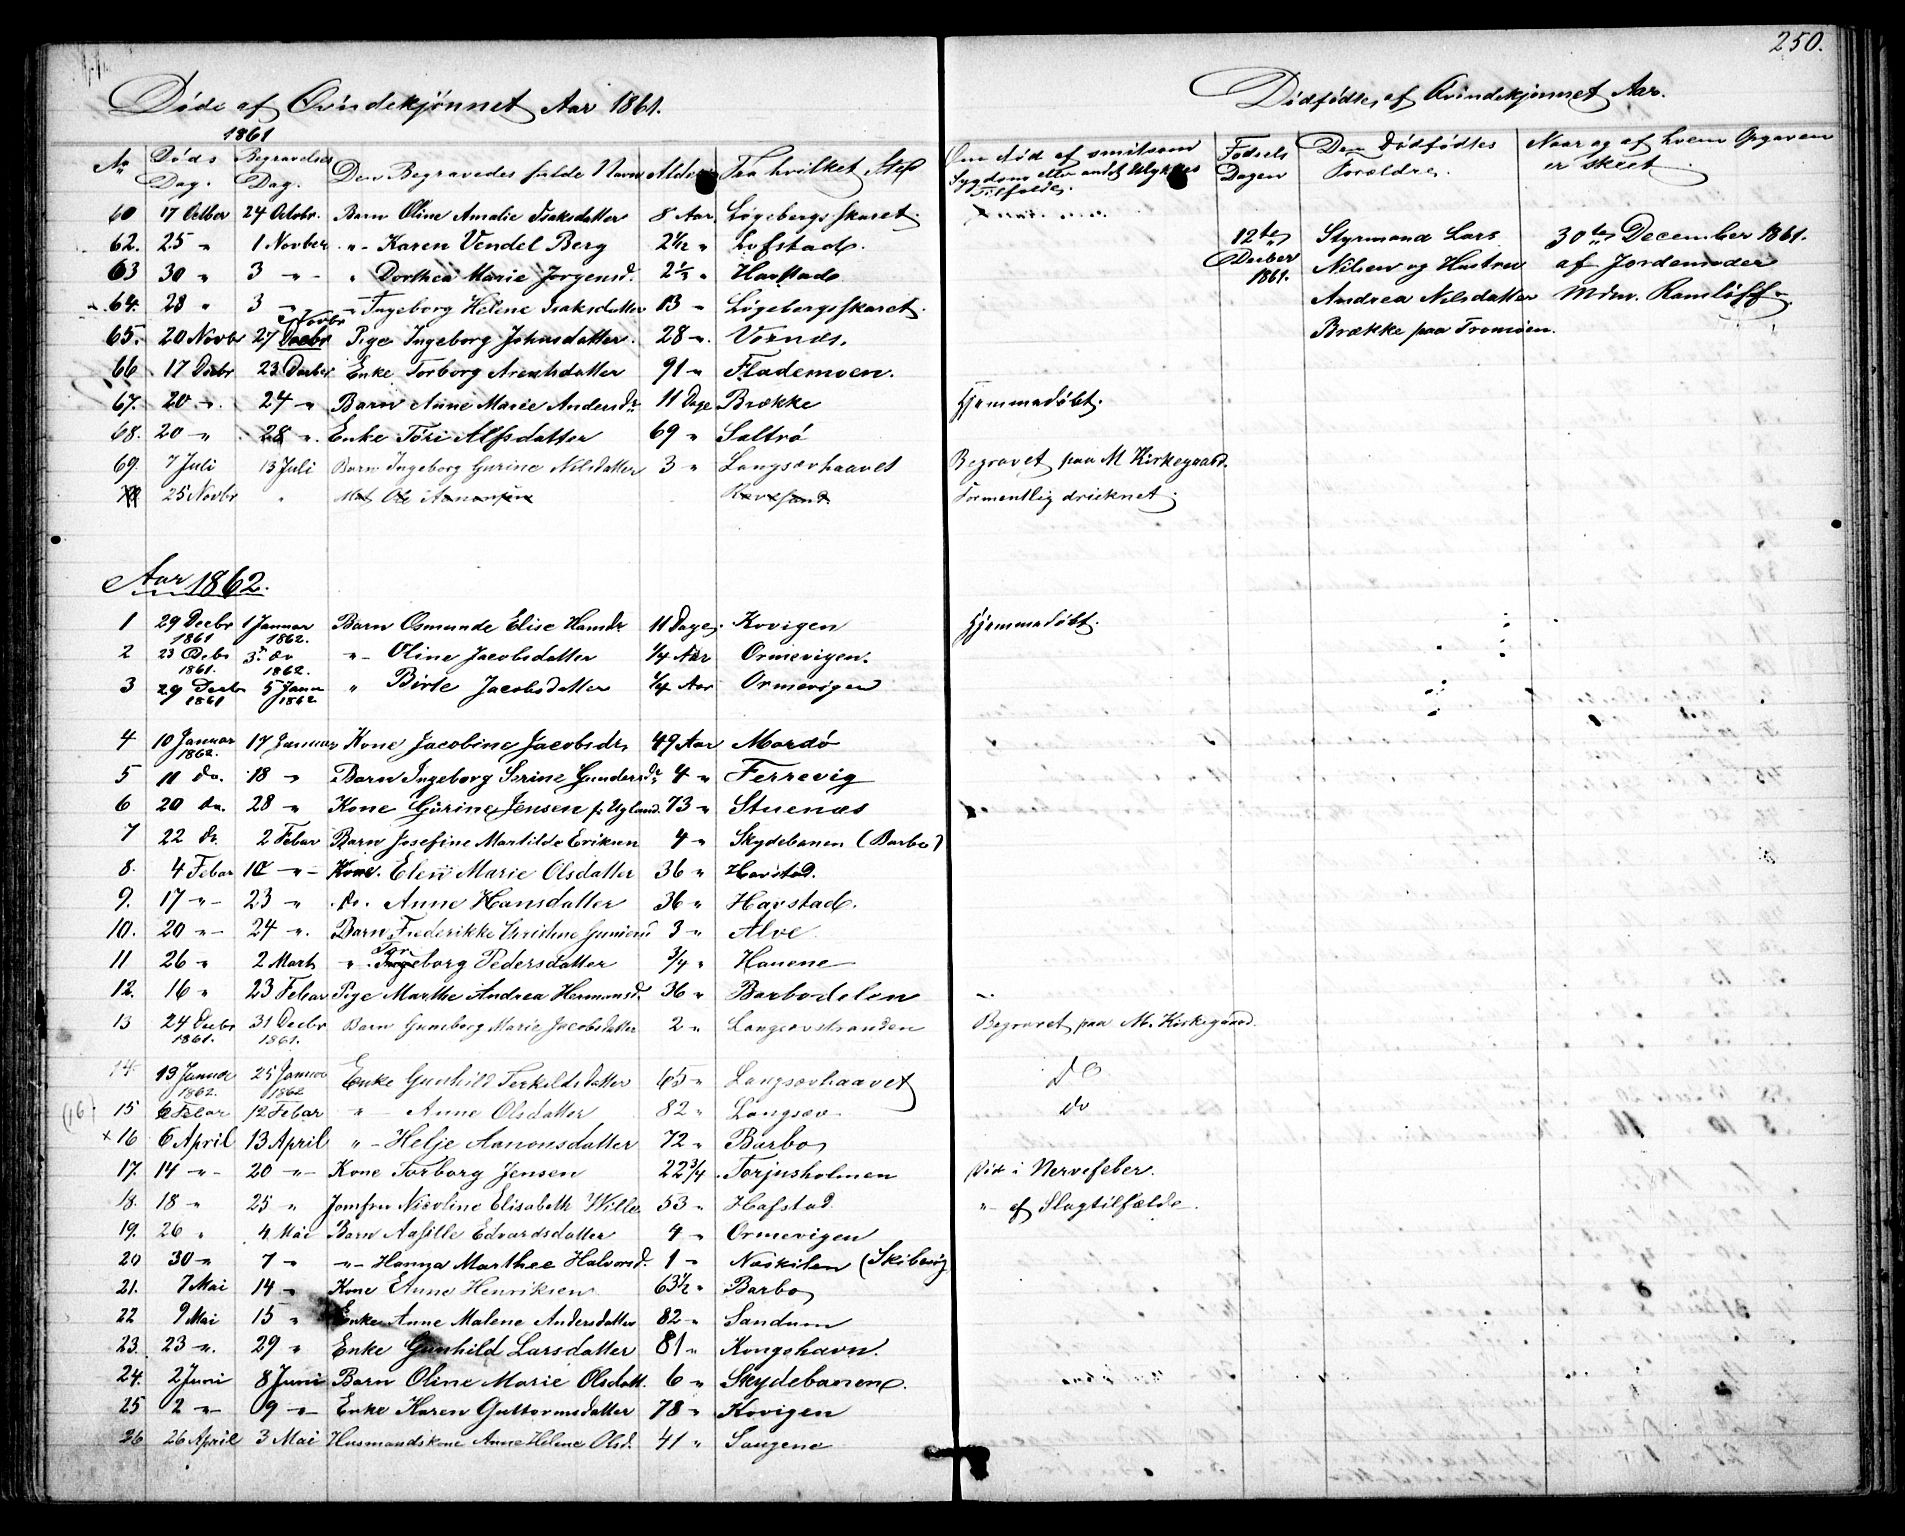 250.
Døde af Qvindekjønnet Aar 1861.
Dødfødte af Qvindekjønnet Aar.
1861
No Døds Dag. Begravelses Dag. Den Begravedes fulde Navn Alder Fra hvilket Sted Om død af smitsom Sygdom eller andet Ulykkes Tilfælde. Fødsels Dagen Den Dødfødtes Forældre. Naar og af hvem Opgaven er skeet
60 17 Octber 24 Octobr. Barn Oline Amalie Isaksdatter 8 Aar. Løgebergsskaret.
62. 25 " 1 Novber " Karen Vendel Berg 2 1/12 " Lofstad.
63 30 " 3 " " Dorthea Marie Jorgensd. 2 1/2 " Havstad
64. 28 " 3 " " Ingeborg Helene Isaksdatter 13 " Løgebergsskaret.
65. 20 Novbr 27 Decbr Novbr Pige Ingeborg Johnsdatter. 28 " Voxnæs.
66 17 Decbr 23 Decber Enke Torborg Arentsdatter 91 " Flademoen.
67. 20 " 24 " Barn Anne Marie Andersdr. 11 Dage Brække Hjemmedøbt.
68. 20 " 28 " Enke Töri Alfsdatter 69 " Saltrö
69. 7 Juli 13 Juli Barn Ingeborg Gurine Nilsdatter 3 " Langsævhaavet Begravet paa M Kirkegaard.
25 Novbr " Ole Aanonsen Formentlig drieknet.
12te Decber 1861. Styrmand Lars Nilsen og Hustru Andrea Nilsdatter Brække paa Tromøen. 30te December 1861. af Jordemoder Mdm. Ramløff
Aar 1862.
1 29 Decbr 1861 1 Januar 1862. Barn Osmunde Elise Hansdr 11 Dage. Kovigen Hjemmedøbt.
2 23 Debr 1861. 3 do 1862. " Oline Jacobsdatter 1/4 Aar Ormevigen.
3 29 Decbr 1861 5 Januar 1862 " Birte Jacobsdatter 1/4 Aar Ormevigen
4 10 Januar 1862. 17 Januar Kone Jacobine Jacobsdr. 49 Aar Mærdö
5 11 do. 18 " Barn Ingeborg Serine Gundersdr 4 " Ferrevig
6 20 do. 28 " Kone Gurine Jensen f: Ugland. 73 " Stuenæs
7 22 do. 2 Febar Barn Josefine Martilde Eriksen 4 " Skydebanen (Barbo)
8. 4 Febar 10 " Kone. Elen Marie Olsdatter 36 " Havstad.
9. 17 " 23 " do. Anne Hansdatter 36 " Havstad.
10. 20 " 24 " Barn Frederikke Christine Gunders 3 " Alve
11 26 " 2 Marts " Ingeborg Tor Pedersdatter 3/4 " Hauene
12. 16 " 23 Febar Pige Marthe Andrea Hermansd. 36 " Barbodelen
13 24 Decbr 1861. 31 Decbr 1861. Barn Gunneborg Marie Jacobsdatter 2 " Langsævstranden Begravet paa M. Kirkegaard.
14 19 Januar 1862. 25 Januar 1862 Enke Gunhild Terkildsdatter 65 " Langsævhaavet do
(16) 15 6 Febar 12 Febar " Anne Olsdatter 82 " Langsæv do
x 16 6 April 13 April " Helje Aanonsdatter 72 " Barbo
17. 14 " 20 " Kone Torborg Jensen 22 3/4 Torjusholmen Død i Nervefeber.
18. 18 " 25 " Jomfru Nicoline Elisabeth Wille 53 " Hafstad. " af Slagtilfælde.
19. 26 " 4 Mai Barn Aasille Edvardsdatter 4 " Ormevigen
20 30 " 7 " " Hanna Marthee Halvorsd. 1 " Næskilen (Skibvig
21. 7 Mai 14 " Kone Anne Henriksen 63 1/2 " Barbo
22 9 Mai 15 " Enke Anne Malene Andersdatter 82 " Sandum
23. 23 " 29 " Enke Gunhild Larsdatter 81 " Kongshavn.
24. 2 Juni 8 Juni Barn Oline Marie Olsdatt. 6 " Skydebanen.
25 2 " 9 " Enke Karen Guttormsdatter 78 " Kovigen
26 26 April 3 Mai Husmandskone Anne Helene Olsd. 41 " Saugene